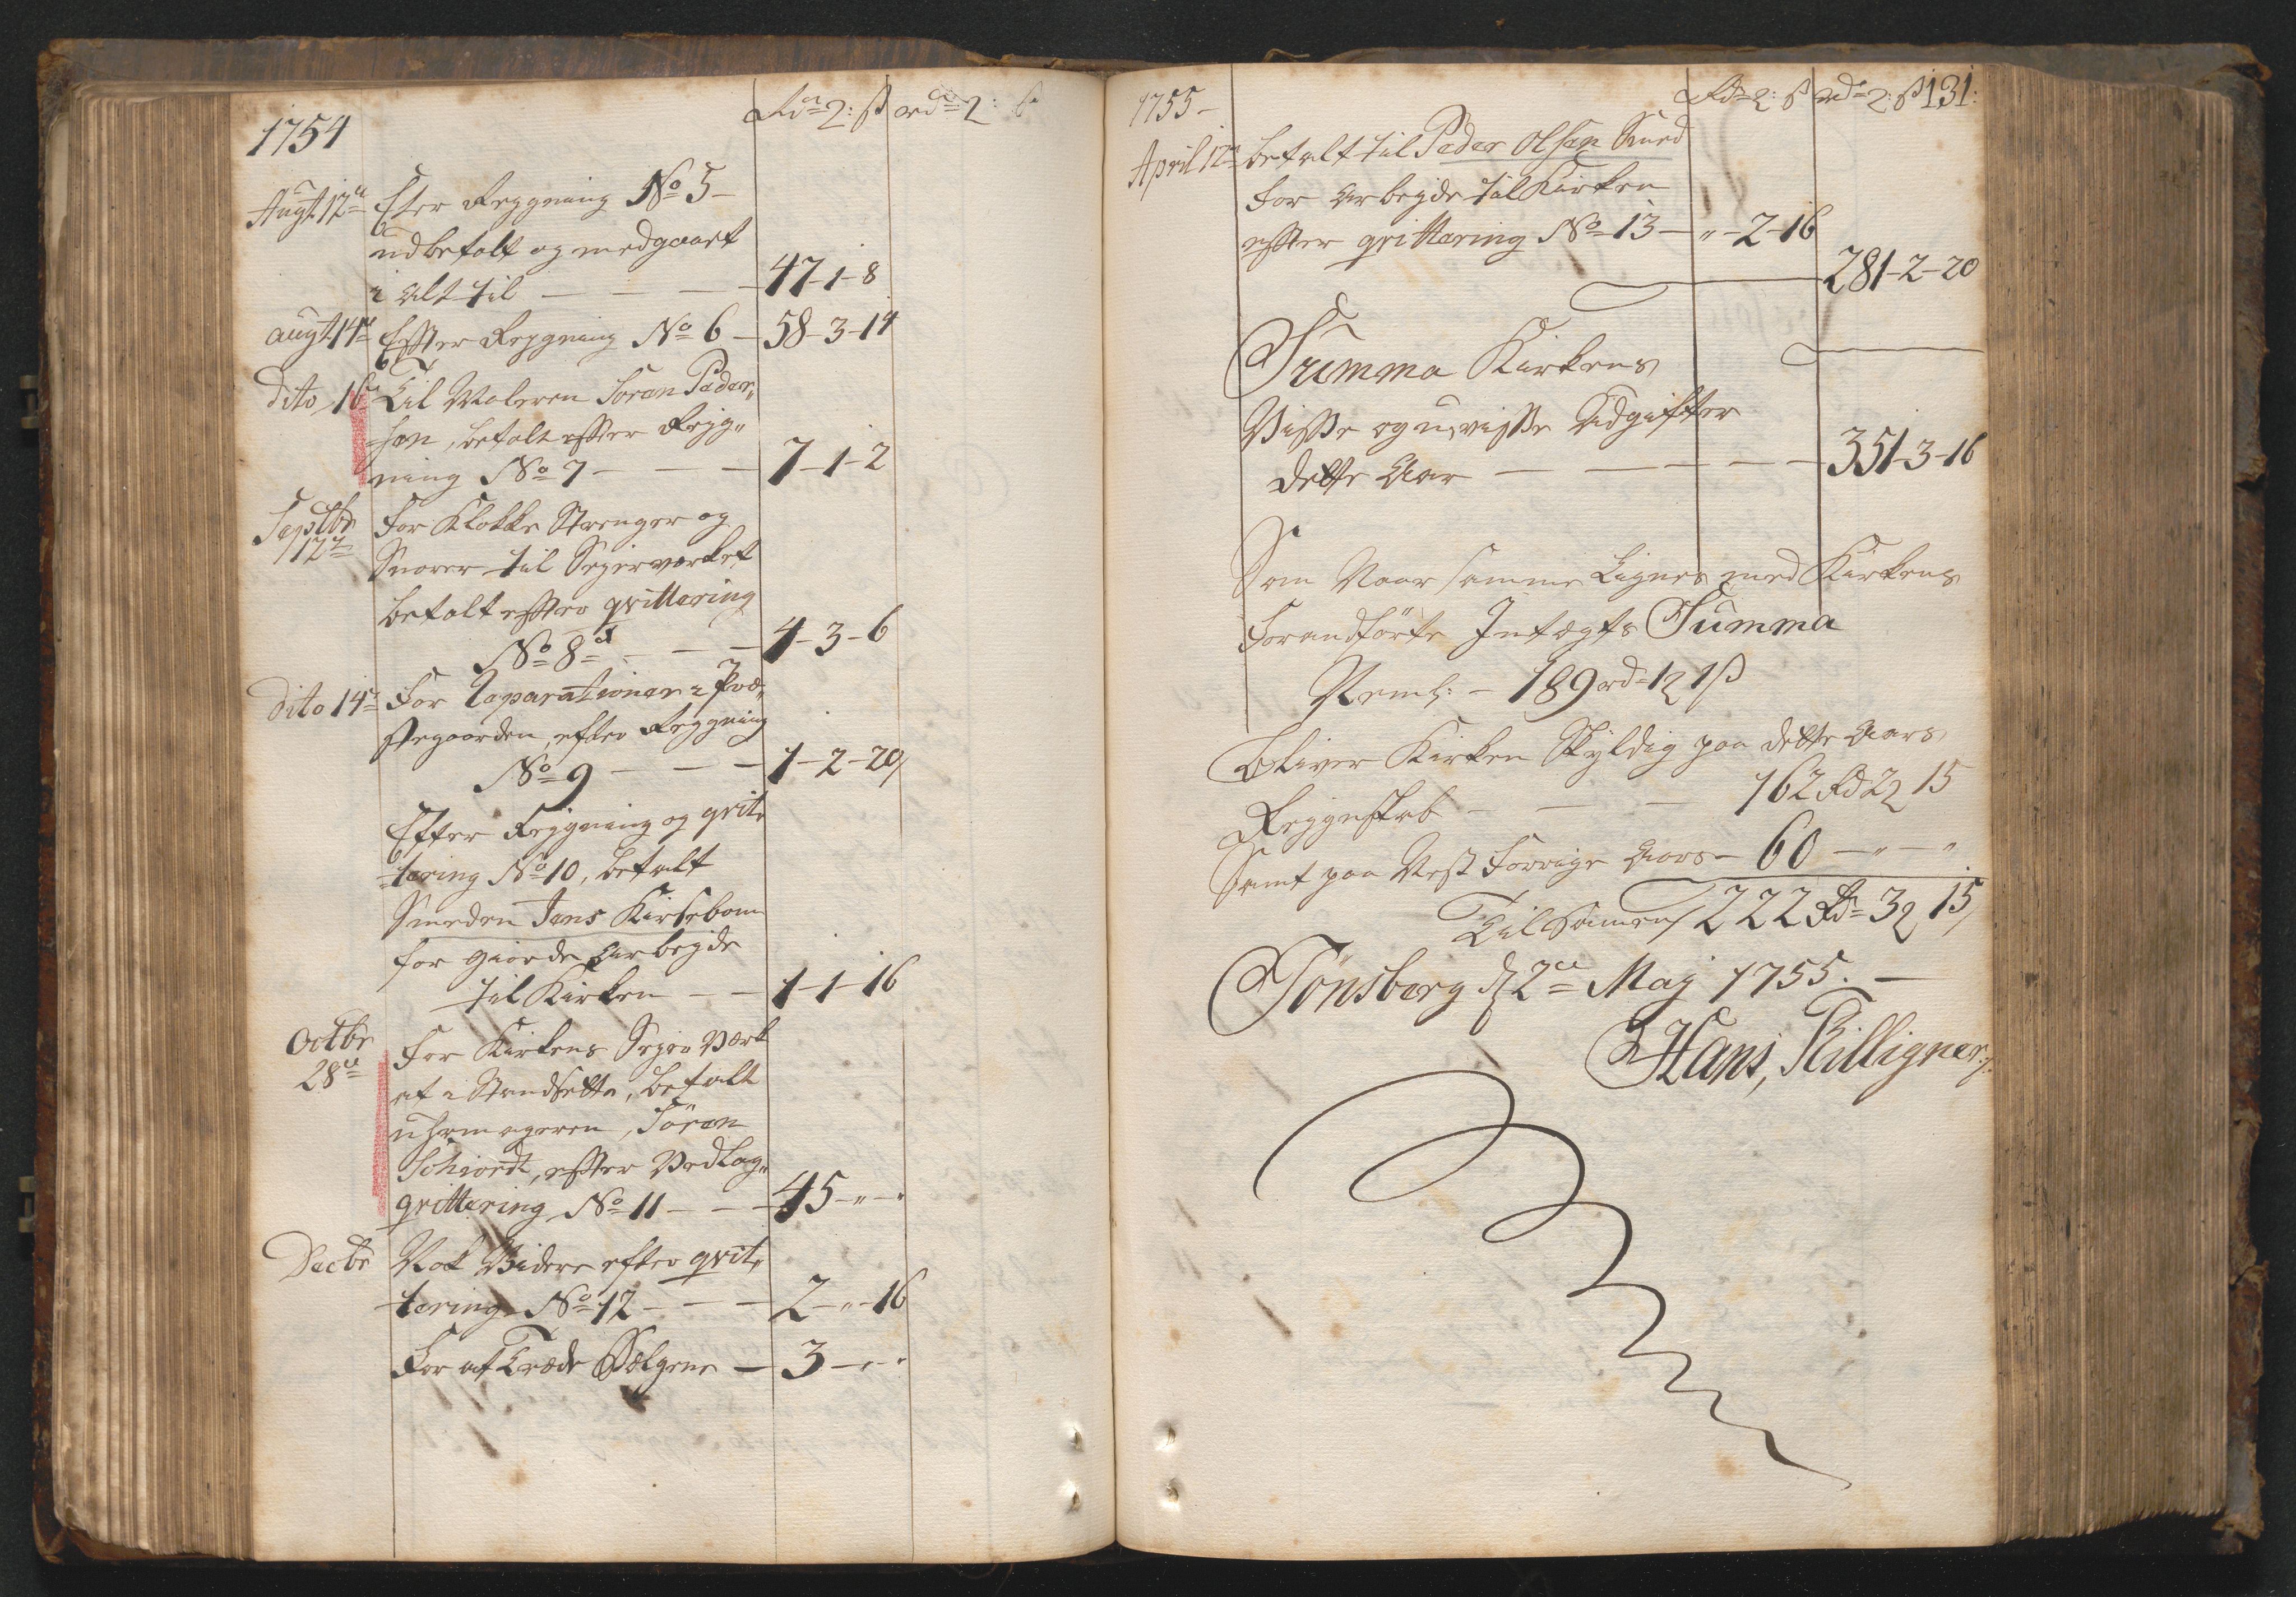 1754
Rd 2: ß rd 2: ß
Augt 12te Efter Regning No 5
udbetalt og medgaaet
i alt til — — — 47-1-8
augt 14de Efter Regning No 6 — 58-3-14
Dito 16 Til Maleren Søren Peder„
„sen, betalt efter Reig„
ning No 7 — — — 7-1-2
Septbr 12te For Klokke Strenger og
Snorer til Sejerværket
betalt efter qvittering
No 8 — — — 4-3-6
Dito 14de For Reparationer i Præ„
stegaarden, efter Regning
No 9 — — — 1-2-20
Efter Regning og qvit„
„tering No 10, betalt
Smeden Jens Kirsebom
for giorde Arbejde
til Kirken — — 1-1-16
Octbr 28de For Kirkens Sejer Værk
at i Standsætte, betalt
uhrmageren, Søren
Schiørdt, efter Vedlag„
qvittering No 11 — — 45-„-„
Decbr Nok Videre efter qvit„
„tering No 12 — — — 2-„-16
For at Træde Bælgene — 3-„-„
1755
Rd 2: ß rd 2: ß 131:
April 12te betalt til Peder Olsen Smed
for Arbejde til Kirken
efter qvittering No 13 — „-2-16
281-2-20
Summa Kirkens
Visse og uvisse Udgifter
dette Aar — — — — — 351-3-16
Som Naar samme Lignes med Kirkens
Forandførte Indtægts Summa
Neml: — 189 rd 1 2 1 ß
Bliver Kirken Skyldig paa dette Aars
Regnskab — — — 162 Rd 2 2 15
Samt paa Rest forrige Aars — 60 — „ — „
Til Sammen 222 Rd 3 2 15
Tönsberg d 2de Maj 1755. —
Hans, Killigner